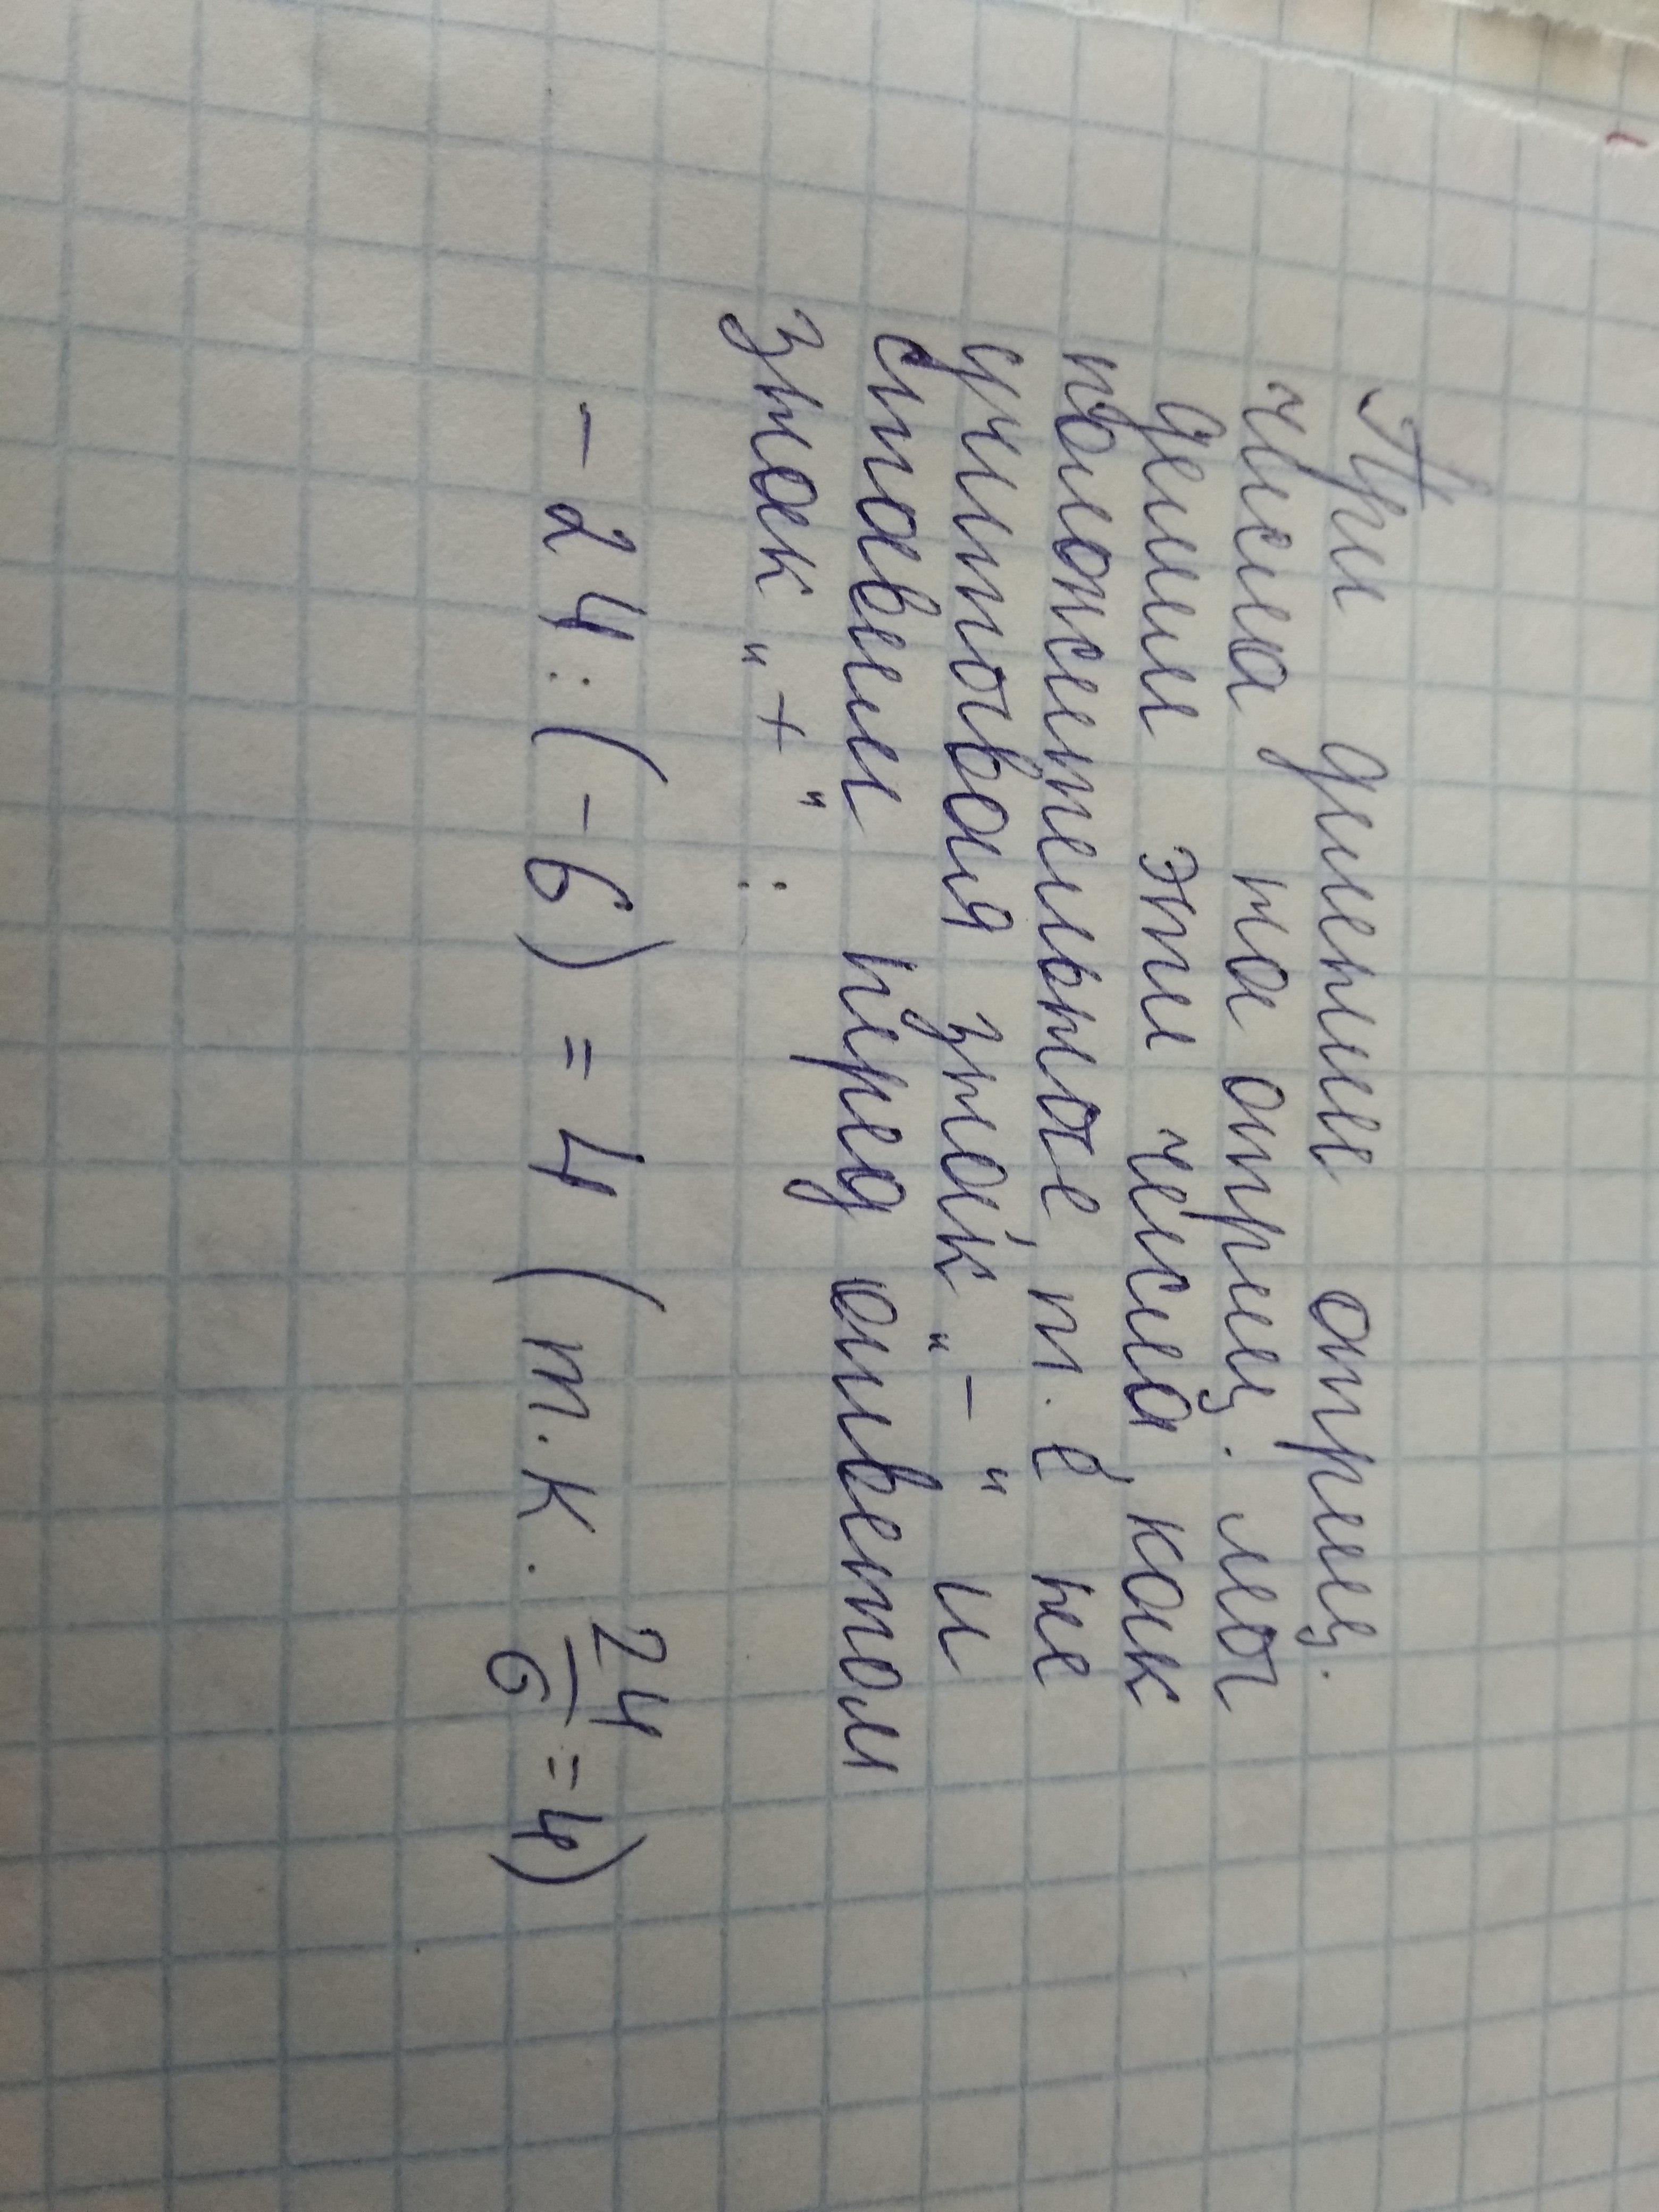 При делении отриц.
числа на отриц. мы
делим эти числа, как
положительные, т. е не
учитывая знак „-“ и
ставим перед ответом
знак „+“:
- 24 : (-6) = 4 (т.к. 24/6 = 4)